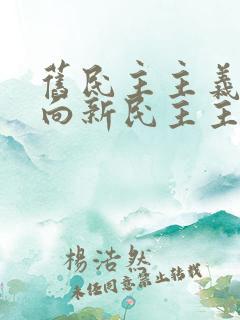 舊民主主義
向新民主主
楊浩然
未经同意禁止转载